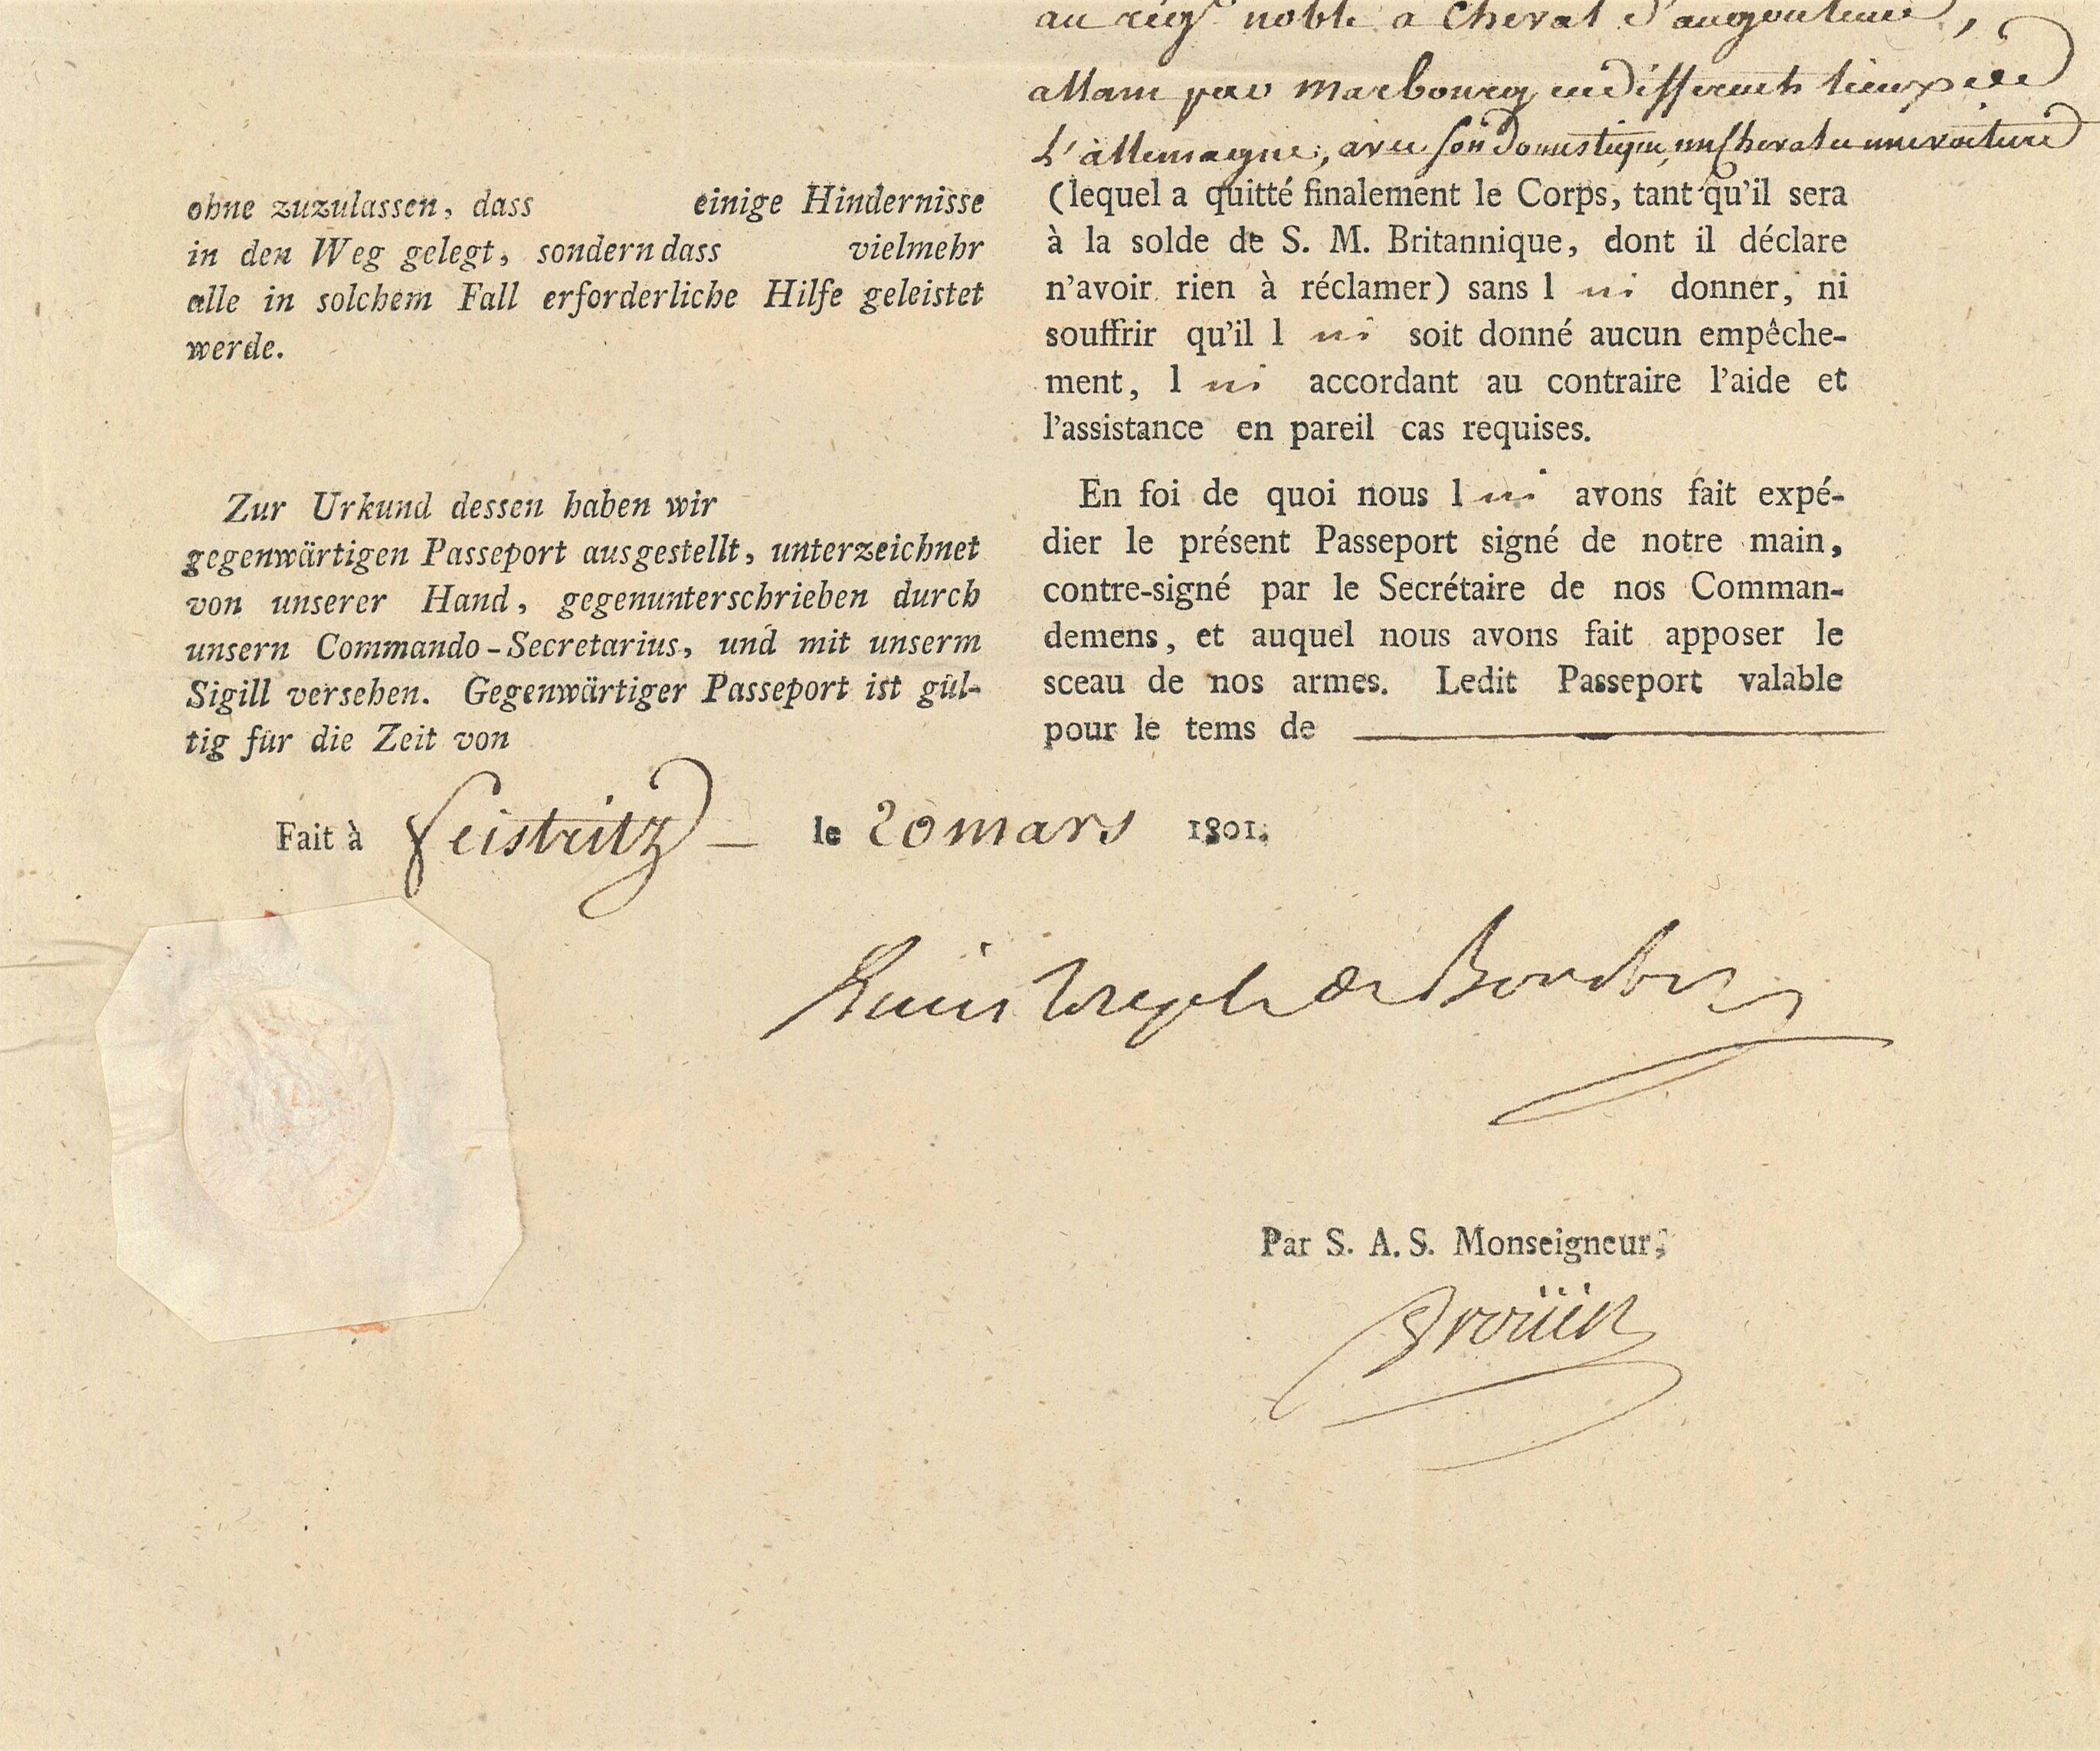 au régt noble a Cheval d'angouleme,
allant par Marbourg en differents lieux de
L'allemagne, avec son Domestique, un Cheval et une voiture
ohne zuzulassen, dass einige Hindernisse
in den Weg gelegt, sondern dass vielmehr
alle in solchem Fall erforderliche Hilfe geleistet
werde.
(lequel a quitté finalement le Corps, tant qu'il sera
à la solde de S. M. Britannique, dont il déclare
n'avoir rien à réclamer) sans l ui donner, ni
souffrir qu'il l ui soit donné aucun empêche-
ment, l ui accordant au contraire l'aide et
l'assistance en pareil cas requises.
Zur Urkund dessen haben wir
gegenwärtigen Passeport ausgestellt, unterzeichnet
von unserer Hand, gegenunterschrieben durch
unsern Commando-Secretarius, und mit unserm
Sigill versehen. Gegenwärtiger Passeport ist gül-
tig für die Zeit von
En foi de quoi nous l ui avons fait expé-
dier le présent Passeport signé de notre main,
contre-signé par le Secrétaire de nos Comman-
demens, et auquel nous avons fait apposer le
sceau de nos armes. Ledit Passeport valable
pour le tems de
Fait à Feistritz le 20 mars 1801.
Louis Joseph de Bourbon
Par S. A. S. Monseigneur,
Drouin